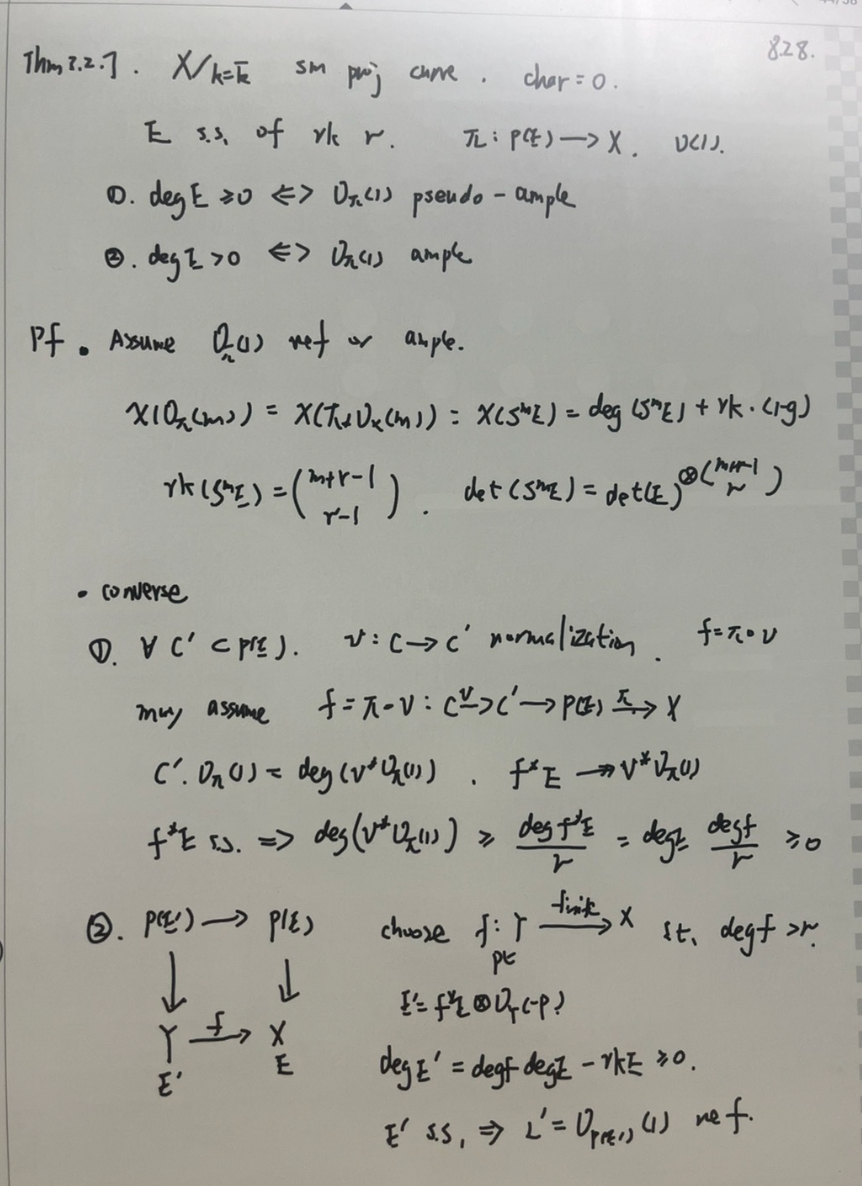 828.
Thm 3.2.7. X/k=k̄ sm proj curve. char=0.
E s.s. of rk r. π: P(E) → X. O(1).
①. deg E ≥0 <=> Oπ(1) pseudo-ample
②. deg E >0 <=> Oπ(1) ample
Pf • Assume Oπ(1) nef or ample.
χ(Oπ(m)) = χ(π*Oπ(m)) = χ(SᵐE) = deg(SᵐE) + rk·(1-g)
rk(SᵐE) = (m+r-1 r-1). det(SᵐE) = det(E)^⊗(m+r-1 r)
• converse
①. ∀ C' ⊂ P(E). ν: C → C' normalization. f=π∘ν
may assume f = π∘ν: C →ν C' → P(E) →π X
C'. Oπ(1) = deg(ν*Oπ(1)). f*E ↠ ν*Oπ(1)
f*E s.s. => deg(ν*Oπ(1)) ≥ deg f*E / r = deg E deg f / r ≥0
②. P(E') → P(E) choose f: Y →finite X s.t. deg f > r.
pt
E' = f*E ⊗ O_Y(-p)
Y →f X
E' E
deg E' = deg f deg E - rk E ≥0.
E' s.s, => L' = O_P(E')(1) nef.